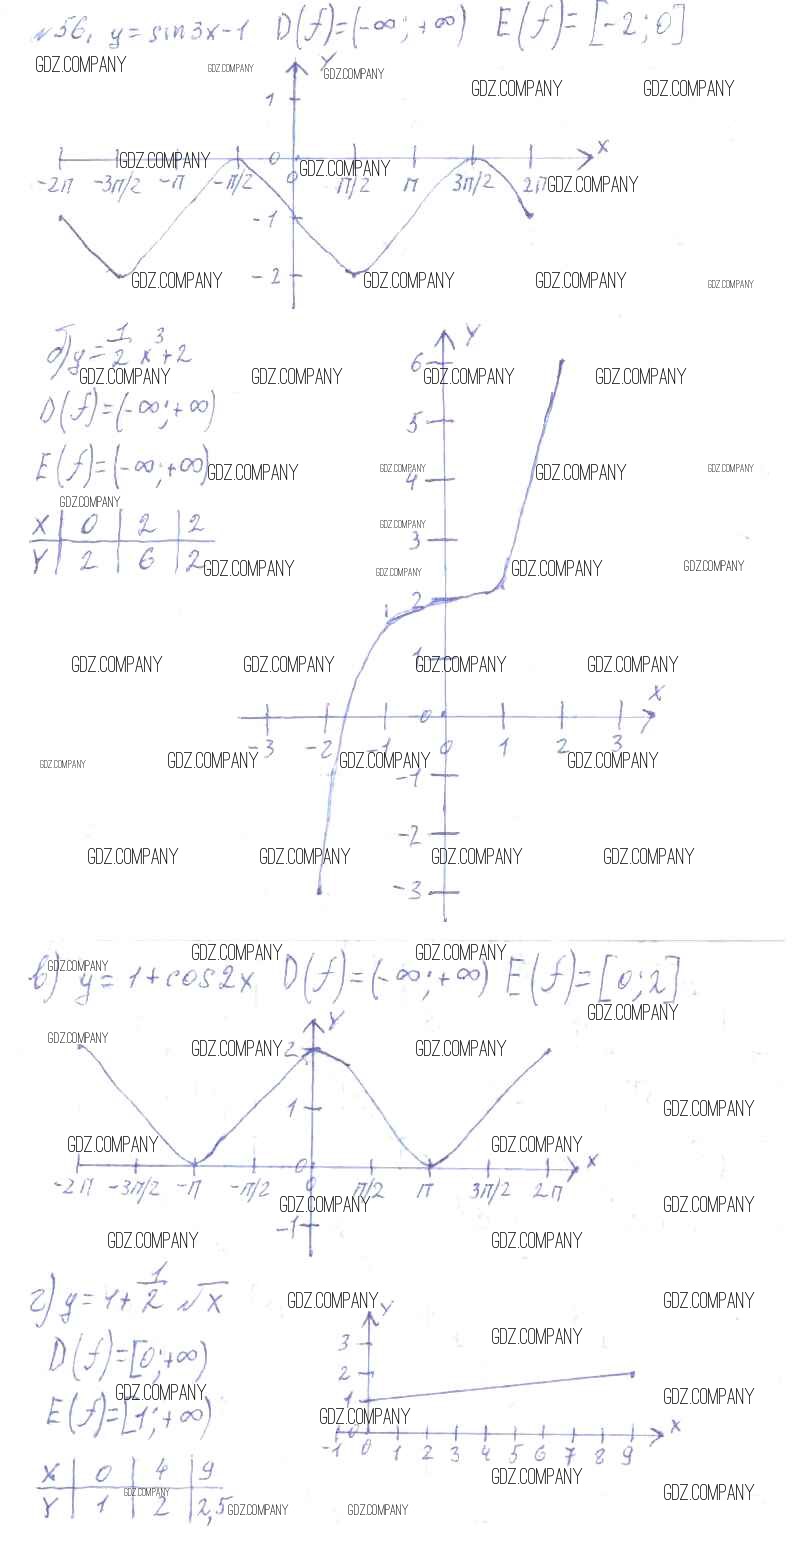 №56. y = sin3x-1 D(f)=(-∞;+∞) E(f)=[-2;0]
GDZ.COMPANY GDZ.COMPANY GDZ.COMPANY GDZ.COMPANY GDZ.COMPANY
Y
1
0 X
GDZ.COMPANY GDZ.COMPANY
-2π -3π/2 -π -π/2 0 π/2 π 3π/2 2π GDZ.COMPANY
-1
-2
GDZ.COMPANY GDZ.COMPANY GDZ.COMPANY GDZ.COMPANY
б) y = 1/2 x³+2
Y
6
GDZ.COMPANY GDZ.COMPANY GDZ.COMPANY GDZ.COMPANY
D(f)=(-∞;+∞)
5
E(f)=(-∞;+∞) GDZ.COMPANY GDZ.COMPANY GDZ.COMPANY GDZ.COMPANY
4
GDZ.COMPANY
X 0 2 2
GDZ.COMPANY
3
Y 2 6 2 GDZ.COMPANY GDZ.COMPANY GDZ.COMPANY GDZ.COMPANY
2
1
GDZ.COMPANY GDZ.COMPANY GDZ.COMPANY GDZ.COMPANY
0 X
-3 -2 -1 0 1 2 3
GDZ.COMPANY GDZ.COMPANY GDZ.COMPANY GDZ.COMPANY
-1
-2
GDZ.COMPANY GDZ.COMPANY GDZ.COMPANY GDZ.COMPANY
-3
GDZ.COMPANY GDZ.COMPANY
GDZ.COMPANY
в) y = 1+cos2x D(f)=(-∞;+∞) E(f)=[0;2]
GDZ.COMPANY
Y
GDZ.COMPANY GDZ.COMPANY 2 GDZ.COMPANY
1 GDZ.COMPANY
GDZ.COMPANY GDZ.COMPANY
0 X
-2π -3π/2 -π -π/2 0 π/2 π 3π/2 2π
GDZ.COMPANY GDZ.COMPANY
-1
GDZ.COMPANY GDZ.COMPANY
г) y = 1+ 1/2 √x
GDZ.COMPANY Y GDZ.COMPANY
GDZ.COMPANY
D(f)=[0;+∞)
3
2
GDZ.COMPANY GDZ.COMPANY
1
E(f)=[1;+∞)
GDZ.COMPANY
0 X
-1 0 1 2 3 4 5 6 7 8 9
X 0 4 9
GDZ.COMPANY
GDZ.COMPANY GDZ.COMPANY
Y 1 2 2,5 GDZ.COMPANY GDZ.COMPANY